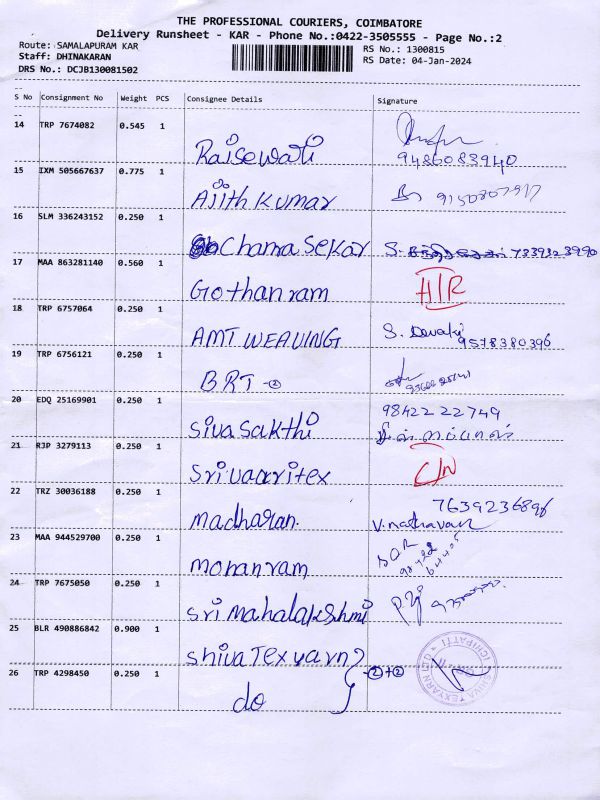 THE PROFESSIONAL COURIERS, COIMBATORE
Delivery Runsheet - KAR - Phone No.:0422-3505555 - Page No.:2
Route: SAMALAPURAM KAR RS No.: 1300815
Staff: DHINAKARAN RS Date: 04-Jan-2024
DRS No.: DCJB130081502
S No Consignment No Weight PCS Consignee Details Signature
14 TRP 7674082 0.545 1
Raisewari 9486083940
15 IXM 505667637 0.775 1
Ajith Kumar
16 SLM 336243152 0.250 1
Chama Sekar S. 7339323990
17 MAA 863281140 0.560 1
Gothanram H/R
18 TRP 6757064 0.250 1
AMT WEAVING S. Devaki 9578380396
19 TRP 6756121 0.250 1
BRT -②
20 EDQ 25169901 0.250 1
Siva Sakthi 98422 22749
21 RJP 3279113 0.250 1
Srivaaritex C/N
22 TRZ 30036188 0.250 1
madharan. 7639236896
23 MAA 944529700 0.250 1
mohanram
24 TRP 7675050 0.250 1
Sri Mahalakshmi
25 BLR 490886842 0.900 1
Shiva Tex yarn
26 TRP 4298450 0.250 1
do -②+②